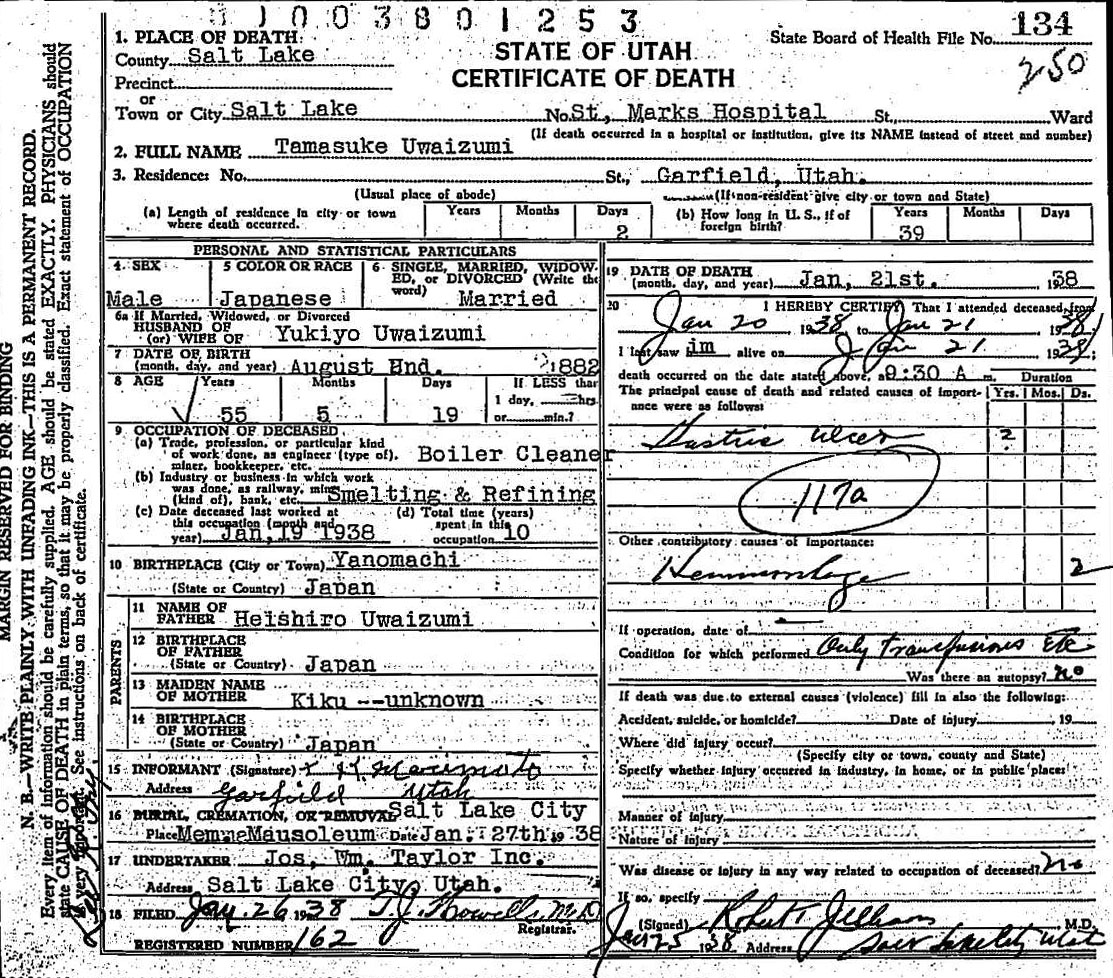 01003801253
1. PLACE OF DEATH:
County Salt Lake
Precinct
or
Town or City Salt Lake
STATE OF UTAH
CERTIFICATE OF DEATH
State Board of Health File No. 134
250
No. St, Marks Hospital St., Ward
(If death occurred in a hospital or institution, give its NAME instead of street and number)
2. FULL NAME Tamasuke Uwaizumi
3. Residence: No. St., Garfield, Utah.
(Usual place of abode) (If non-resident give city or town and State)
(a) Length of residence in city or town where death occurred. Years Months Days 2
(b) How long in U. S., if of foreign birth? Years 39 Months Days
PERSONAL AND STATISTICAL PARTICULARS
4. SEX Male
5 COLOR OR RACE Japanese
6 SINGLE, MARRIED, WIDOWED, or DIVORCED (Write the word) Married
6a If Married, Widowed, or Divorced
HUSBAND OF
(or) WIFE OF Yukiyo Uwaizumi
7 DATE OF BIRTH
(month, day, and year) August Hnd. 1882
8 AGE Years 55 Months 5 Days 19
If LESS than 1 day, hrs. or min.?
9 OCCUPATION OF DECEASED
(a) Trade, profession, or particular kind
of work done, as engineer (type of), Boiler Cleaner
miner, bookkeeper, etc.
(b) Industry or business in which work
was done, as railway, mine
(kind of), bank, etc. Smelting & Refining
(c) Date deceased last worked at
this occupation (month and
year) Jan, 19 1938
(d) Total time (years)
spent in this
occupation 10
10 BIRTHPLACE (City or Town) Yanomachi
(State or Country) Japan
PARENTS
11 NAME OF
FATHER Heishiro Uwaizumi
12 BIRTHPLACE
OF FATHER
(State or Country) Japan
13 MAIDEN NAME
OF MOTHER Kiku --unknown
14 BIRTHPLACE
OF MOTHER
(State or Country) Japan
15 INFORMANT (Signature) K Morimoto
Address Garfield Utah
16 BURIAL, CREMATION, OR REMOVAL Salt Lake City
Place Memm Mausoleum Date Jan. 27th 1938
17 UNDERTAKER Jos, Wm. Taylor Inc.
Address Salt Lake City, Utah.
18 FILED Jan. 26 1938 T.J. Howells M.D.
Registrar.
REGISTERED NUMBER 162
19 DATE OF DEATH
(month, day, and year) Jan, 21st. 1938
20 I HEREBY CERTIFY That I attended deceased from
Jan 20 1938 to Jan 21 1938
I last saw im alive on Jan 21 1938
death occurred on the date stated above, at 9:30 A m. Duration
The principal cause of death and related causes of importance were as follows: Yrs. Mos. Ds.
Gastric Ulcer 2
117a
Other contributory causes of importance:
Hemmorhage 2
If operation, date of
Condition for which performed Only transfusions Etc
Was there an autopsy? no
If death was due to external causes (violence) fill in also the following:
Accident, suicide, or homicide? Date of injury , 19
Where did injury occur?
(Specify city or town, county and State)
Specify whether injury occurred in industry, in home, or in public place:
Manner of injury
Nature of injury
Was disease or injury in any way related to occupation of deceased? no
If so, specify
(Signed) Robert Jellison M.D.
Jan 25 1938 Address Salt Lake City Utah
MARGIN RESERVED FOR BINDING
N. B.—WRITE PLAINLY WITH UNFADING INK—THIS IS A PERMANENT RECORD.
Every item of information should be carefully supplied. AGE should be stated EXACTLY. PHYSICIANS should
state CAUSE OF DEATH in plain terms, so that it may be properly classified. Exact statement of OCCUPATION
is very important. See instructions on back of certificate.